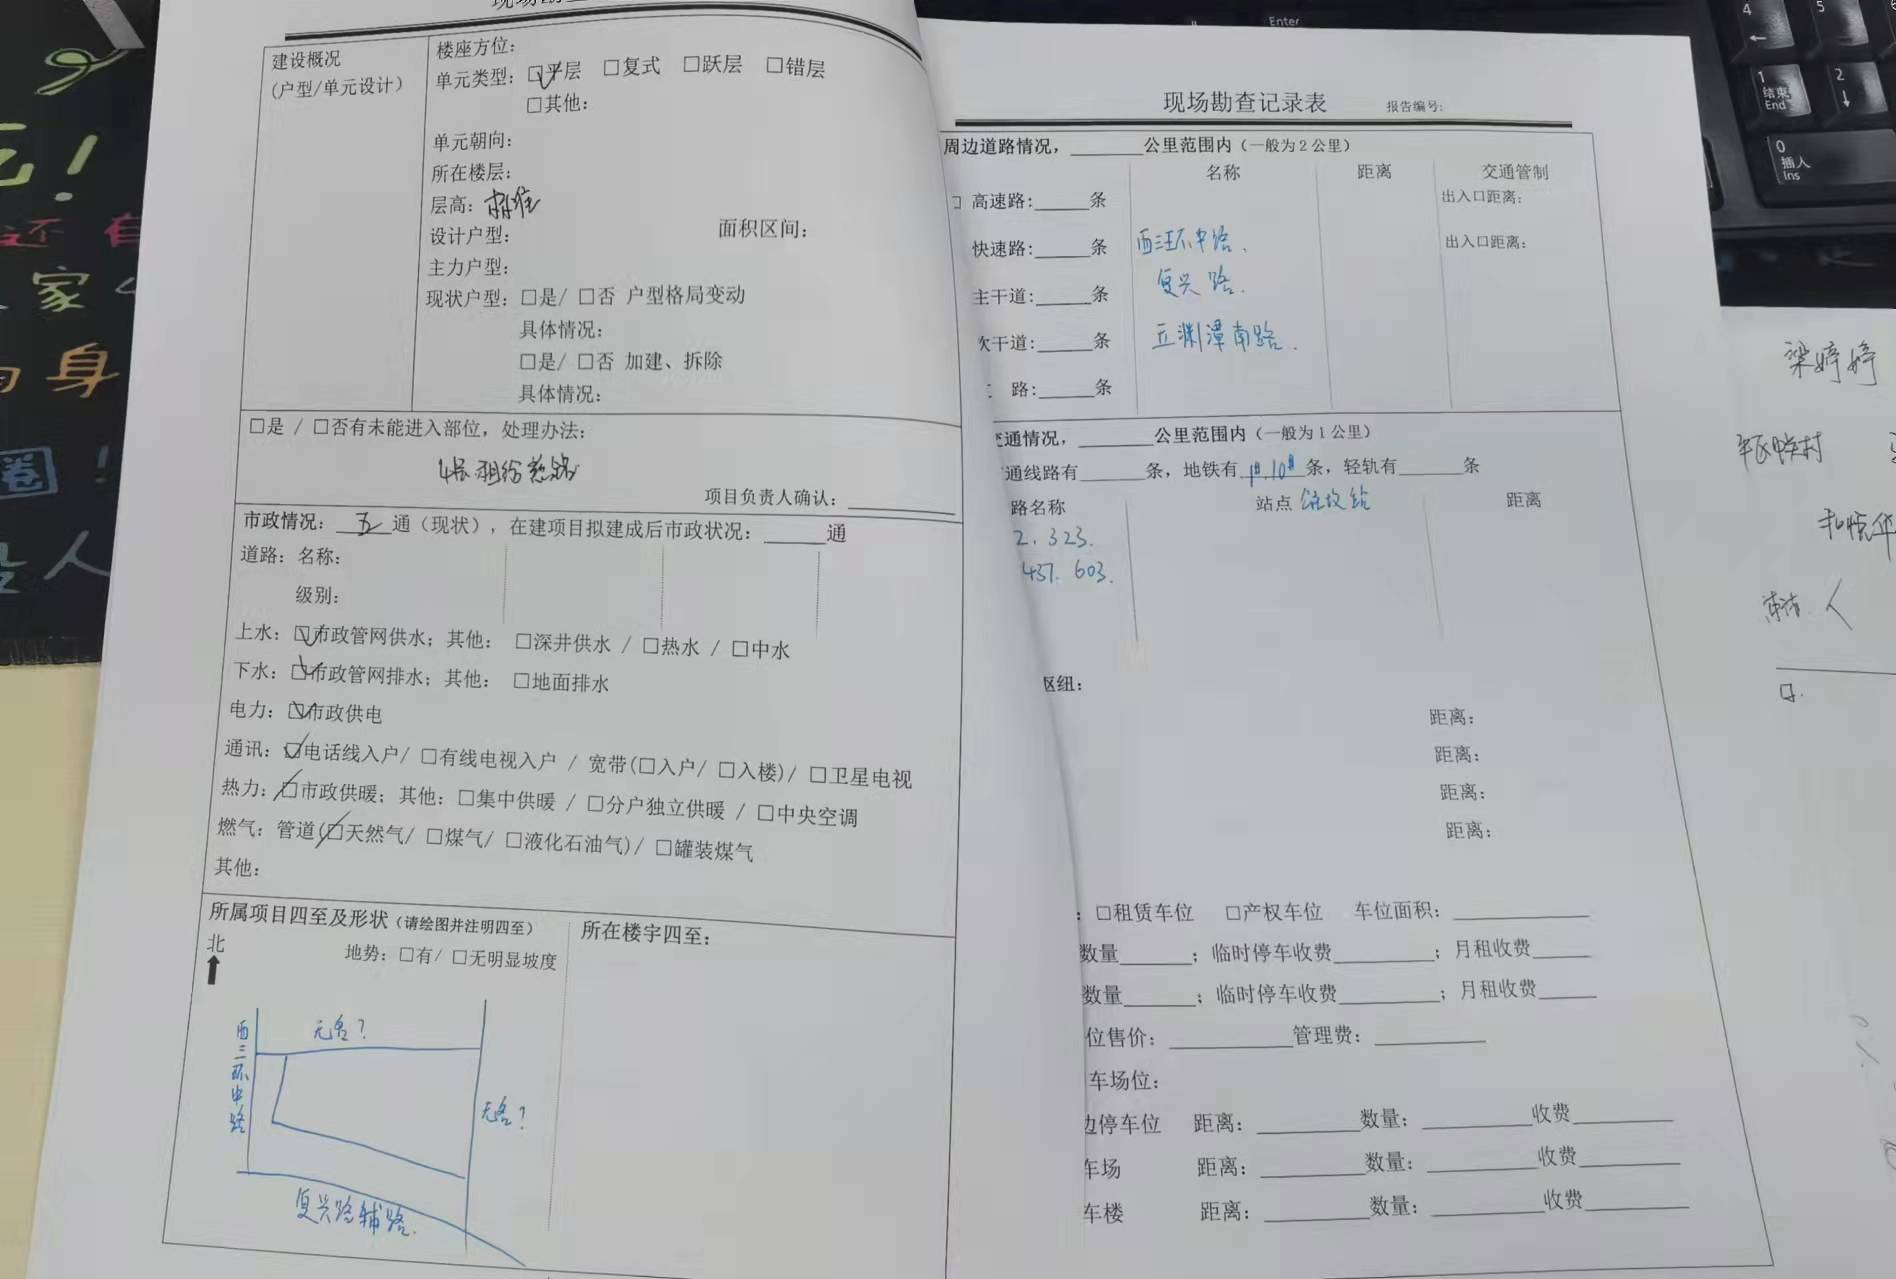 建设概况
(户型/单元设计)
楼座方位：
单元类型：□平层 □复式 □跃层 □错层
□其他：
单元朝向：
所在楼层：
层高：标准
设计户型：
面积区间：
主力户型：
现状户型：□是/ □否 户型格局变动
具体情况：
□是/ □否 加建、拆除
具体情况：
□是 / □否有未能进入部位，处理办法：
项目负责人确认：
市政情况：五通（现状），在建项目拟建成后市政状况：______通
道路：名称：
级别：
上水：□市政管网供水；其他： □深井供水 / □热水 / □中水
下水：□市政管网排水；其他： □地面排水
电力：□市政供电
通讯：□电话线入户/ □有线电视入户 / 宽带(□入户/ □入楼)/ □卫星电视
热力：□市政供暖；其他：□集中供暖 / □分户独立供暖 / □中央空调
燃气：管道(□天然气/ □煤气/ □液化石油气)/ □罐装煤气
其他：
所属项目四至及形状（请绘图并注明四至）
北
地势：□有/ □无明显坡度
西三环中路
无名？
无名？
复兴路辅路.
所在楼宇四至：
现场勘查记录表 报告编号:
周边道路情况，______公里范围内（一般为2公里）
名称 距离 交通管制
□ 高速路:_____条 出入口距离:
快速路:_____条 西三环中路、 出入口距离:
主干道:_____条 复兴路.
次干道:_____条 玉渊潭南路.
路:_____条
交通情况，______公里范围内（一般为1公里）
通线路有______条，地铁有 10# 条，轻轨有______条
路名称 站点 距离
2. 323.
437. 603.
枢纽：
距离：
距离：
距离：
距离：
：□租赁车位 □产权车位 车位面积：________
数量______；临时停车收费________；月租收费_____
数量______；临时停车收费________；月租收费_____
位售价：__________管理费：_________
车场位：
边停车位 距离：________数量：_________收费________
车场 距离：________数量：_________收费________
车楼 距离：________数量：_________收费________
梁婷婷
Enter
4
5
1
结束
End
2
0
插入
Ins
还有
家
身
圈！
人